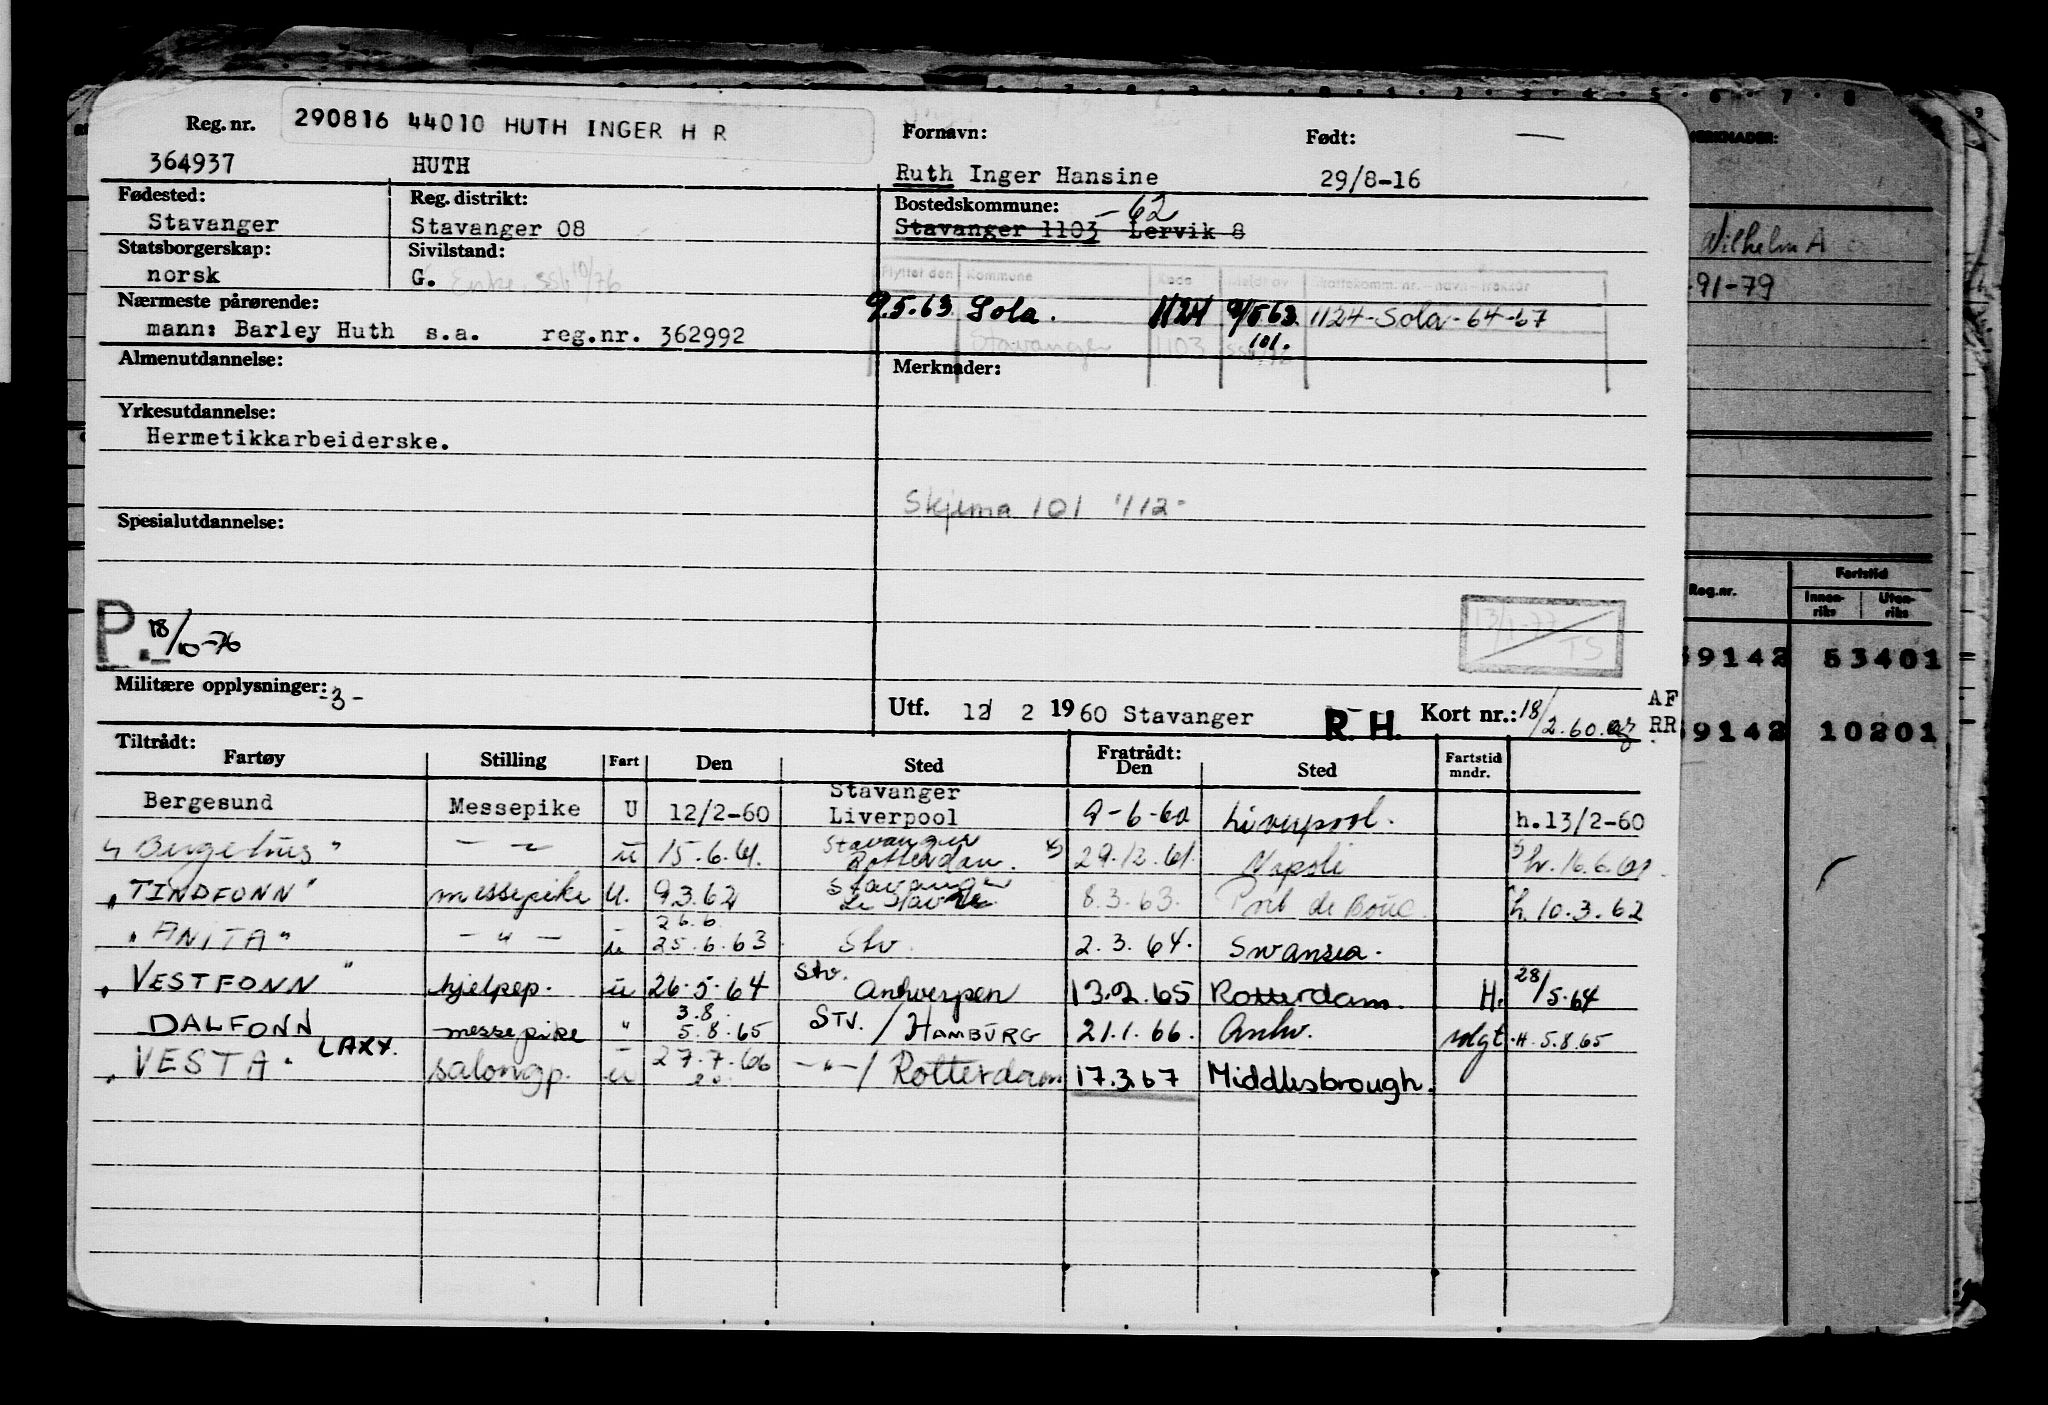 Reg. nr. 290816 44010 HUTH INGER H R Fornavn: Født: —
364937 HUTH Ruth Inger Hansine 29/8-16
Fødested: Reg. distrikt: Bostedskommune: - 62
Stavanger Stavanger 08 Stavanger 1103 Lervik 8
Statsborgerskap: Sivilstand:
norsk G. Enke. ssb 10/76
Flyttet den Kommune Kode Meldt av Skattekomm. nr. - navn - trekkår
Nærmeste pårørende: 9.5.63 Sola. 1124 9/5 63. 1124-Sola-64-67
101.
mann: Barley Huth s.a. reg.nr. 362992 Stavanger 1103
Almenutdannelse: Merknader:
Yrkesutdannelse:
Hermetikkarbeiderske.
Skjema 101 1/12-
Spesialutdannelse:
P. 18/10-76
13/1-77 TS
Militære opplysninger: -3-
Utf. 12/ 2 1960 Stavanger R. H. Kort nr.: 18/2.60. AF
RR
Tiltrådt: Fratrådt:
Fartøy Stilling Fart Den Sted Den Sted Fartstid mndr.
Bergesund Messepike U 12/2-60 Stavanger Liverpool 9-6-60 Liverpool. h.13/2-60
"Bergehus" — " — u 15.6.61. Stavanger Rotterdam. 29.12.61. Napoli h. 16.6.61.
"TINDFONN" messepike U. 9.3.62 Stavanger Le Havre 8.3.63. Port de Bouc. h. 10.3.62
"ANITA" — " — u 26.6. 25.6.63 Stv. 2.3.64. Swansea.
"VESTFONN" hjelpep. u 26.5.64 Stv. Antwerpen 13.2.65 Rotterdam. H. 28/5.64
DALFONN messepike " 3.8. 5.8.65 STV. / HAMBURG 21.1.66. Antw. solgt. H. 5.8.65
"VESTA" LAXX. salongp. u 27.7.66 —"— / Rotterdam 17.3.67 Middlesbrough.
MERKNADER:
Wilhelm A
91-79
Reg.nr. Fartstid
Innen-riks Uten-riks
39142 53401
39142 10201